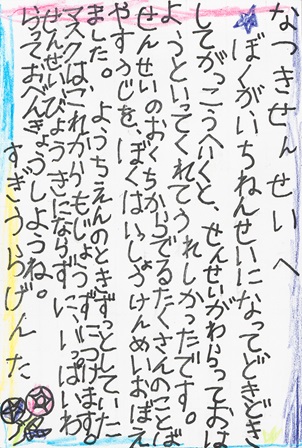 なつきせんせいへ
ぼくがいちねんせいになってどきどき
してがっこうへいくと、せんせいがわらっておは
ようといってくれてうれしかったです。
せんせいのおくちからでるたくさんのことば
やすうじを、ぼくはいっしょうけんめいおぼえ
ました。ようちえんのときずっとしていた
マスクはこれからもじょうずにつけます。
せんせいびょうきにならずに、いっぱいわ
らっておべんきょうしようね。
すぎうらげんた